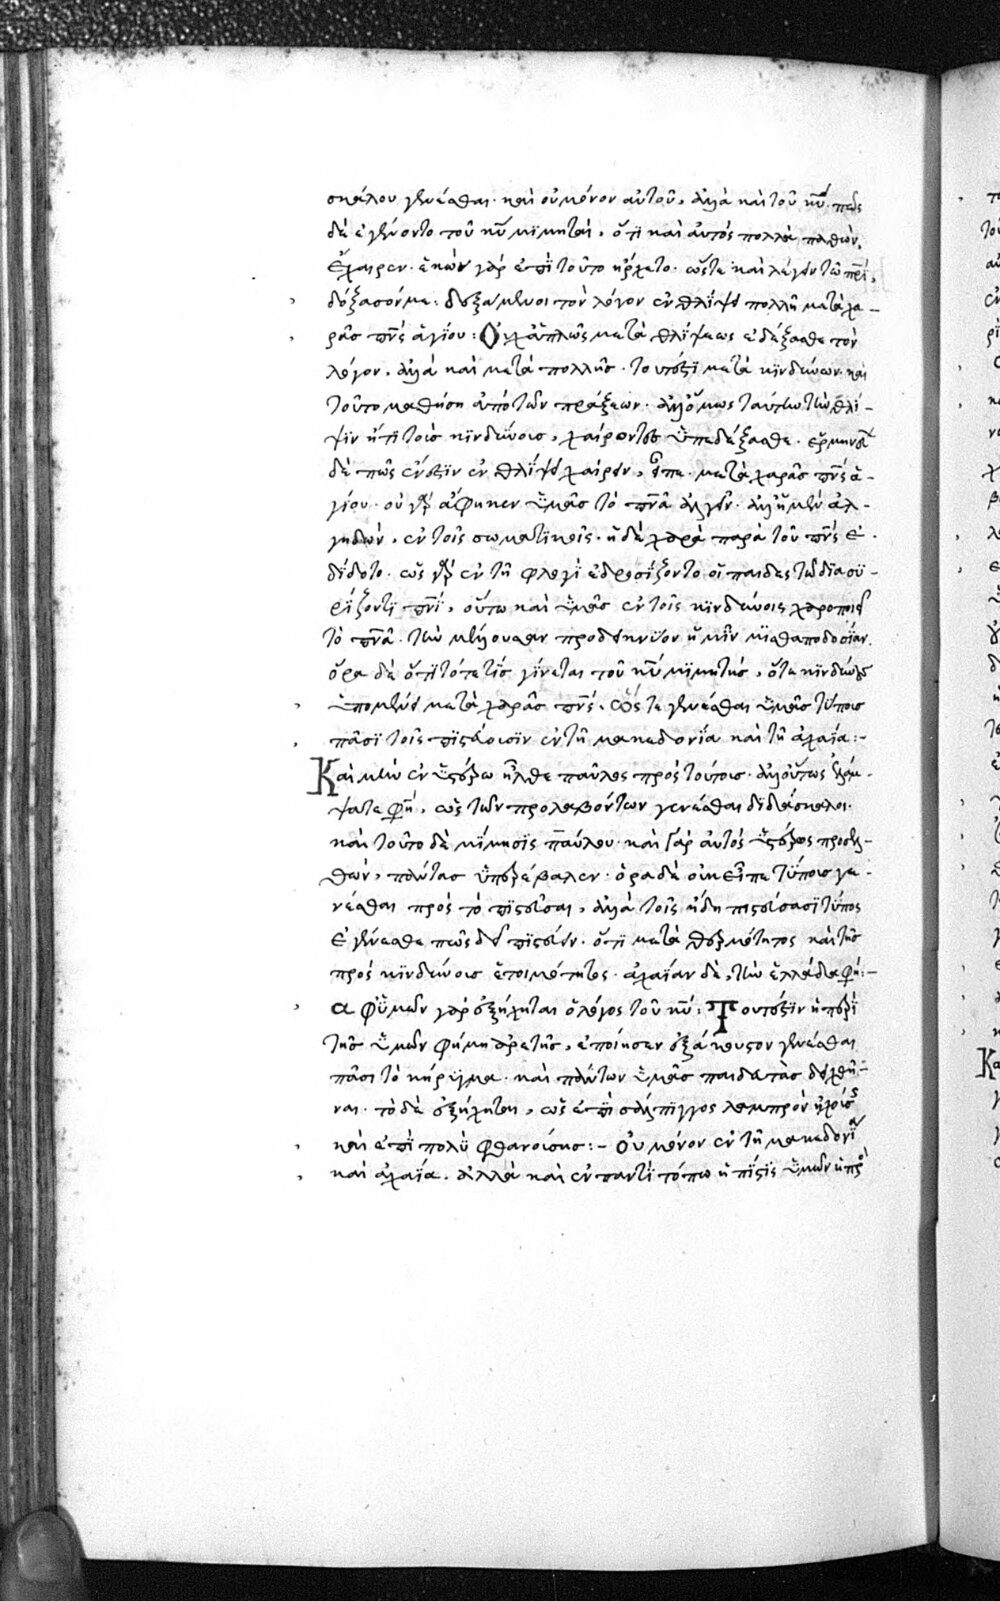 σκάλου γενέσθαι· καὶ οὐ μόνον αὐτοῦ, ἀλλὰ καὶ τοῦ κ͞υ· πῶς
δὲ ἐγένοντο τοῦ κ͞υ μϊμηταὶ, ὅτϊ καὶ αὐτὸς πολλὰ παθὼν,
ἔχαιρεν· ἑκὼν γὰρ ἐπῒ τοῦτο ἤρχετο· ὥστε καὶ λέγειν τῶ π͞ρι,
δόξασόν με: δεξάμενοι τὸν λόγον ἐν θλίψει πολλῆ μετὰ χα-
ρᾶς π͞νς ἁγίου: Οὐχ ἁπλῶς μετὰ θλίψεως ἐδέξασθε τὸν
λόγον, ἀλλὰ καὶ μετὰ πολλῆς· τουτέστϊ μετὰ κϊνδύνων· καὶ
τοῦτο μαθήση ἀπὸ τῶν πράξεων· ἀλλ' ὅμως ταύτην τὴν θλί-
ψϊν ἤτϊ τοὺς κϊνδύνους, χαίροντες ὑπεδέξασθε· ἑρμηνεύει
δὲ πῶς ἔνεστϊν ἐν θλίψει χαίρειν, εἶπε· μετὰ χαρᾶς π͞νς ἁ-
γίου· οὐ γὰρ ἀφῆκεν ὑμᾶς τὸ π͞να ἀλγεῖν· ἀλλ' ἡ μὲν ἀλ-
γηδὼν, ἐν τοῖς σωματϊκοῖς· ἡ δὲ χαρὰ παρὰ τοῦ π͞νς ἐ-
δίδοτο· ὡς γὰρ ἐν τῆ φλογῒ ἐδροσίζοντο οἱ παῖδες τῶ διασϋ-
ρίζοντϊ π͞νϊ, οὕτω καὶ ὑμᾶς ἐν τοῖς κϊνδύνοις χαροποιεῖ
τὸ π͞να· τὴν μέλλουσαν προδεικνύον ἡμῖν μϊσθαποδοσίαν.
ὅρα δὲ ὅτϊ τότε τϊς γίνεται τοῦ κ͞υ μϊμητὴς, ὅτε κϊνδύνους
ὑπομένει μετὰ χαρᾶς π͞νς. ὥστε γενέσθαι ὑμᾶς τύπους
πᾶσϊ τοῖς πϊστεύουσϊν ἐν τῆ μακεδονία καὶ τῆ ἀχαΐα:-
Καὶ μὴν ἐν ὑστέρω ἦλθε παῦλος πρὸς τούτους· ἀλλ' οὕτως ἐλάμ-
ψατε φη, ὡς τῶν προλαβόντων γενέσθαι δϊδάσκαλοι·
καὶ τοῦτο δὲ μίμησϊς παύλου· καὶ γὰρ αὐτὸς ὕστερος προσελ-
θὼν, πάντας ὑπερέβαλεν· ὅρα δὲ οὐκ εἶπε τύπους γε-
νέσθαι πρὸς τὸ πϊστεῦσαι, ἀλλὰ τοῖς ἤδη πιστεύσασϊ τύπος
ἐγένεσθε πῶς δεῖ πϊστεύειν· ὅτϊ μετὰ θερμότητος καὶ τῆς
πρὸς κϊνδύνους ἑτοιμότητος· ἀχαΐαν δὲ, τὴν ἑλλάδα φη:-
ἀφ' ὑμῶν γὰρ ἐξήχηται ὁ λόγος τοῦ κ͞υ: Τουτέστϊν ἡ περῒ
τῆς ὑμῶν φήμη ἀρετῆς, ἐποίησεν ἐξάκουστον γενέσθαι
πᾶσι τὸ κήρϋγμα· καὶ πάντων ὑμᾶς παιδευτὰς δειχθῆ-
ναι· τὸ δὲ ἐξήχηται, ὡς ἐπῒ σάλπϊγγος λαμπρὸν ἠχούσης
καὶ ἐπῒ πολῢ φθανούσης:- Οὐ μόνον ἐν τῆ μακεδονία
καὶ ἀχαΐα. ἀλλὰ καὶ ἐν παντῒ τόπω ἡ πίστϊς ὑμῶν ἡ πρὸς